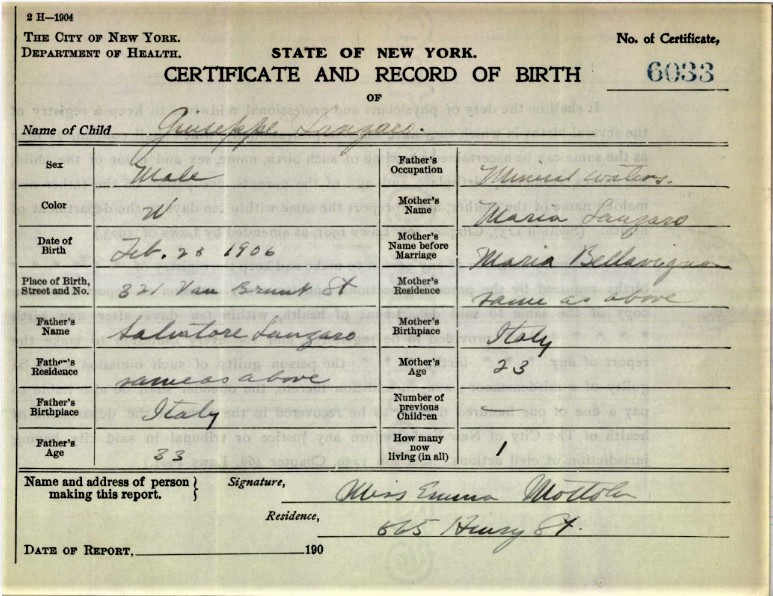 2 H—1904
THE CITY OF NEW YORK.
DEPARTMENT OF HEALTH.
STATE OF NEW YORK.
CERTIFICATE AND RECORD OF BIRTH
OF
No. of Certificate,
6033
Name of Child Giuseppe Lanzaro.
Sex Male
Father's Occupation Mineral waters.
Color W
Mother's Name Maria Lanzaro
Date of Birth Feb. 23 1906
Mother's Name before Marriage Maria
Place of Birth, Street and No. 321 Van Brunt St
Mother's Residence same as above
Father's Name Salvatore Lanzaro
Mother's Birthplace Italy
Father's Residence same as above
Mother's Age 23
Father's Birthplace Italy
Number of previous Children —
Father's Age 33
How many now living (in all) 1
Name and address of person making this report.
Signature, Miss Emma Mottola
Residence, 665 Henry St.
DATE OF REPORT, 190